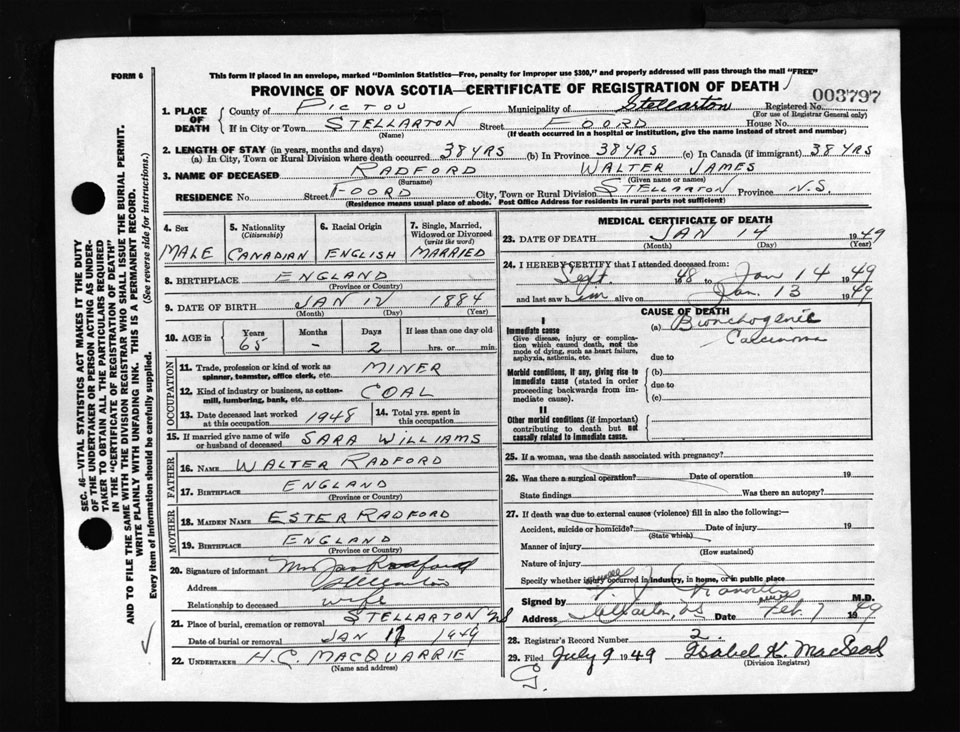 FORM 6
This form if placed in an envelope, marked "Dominion Statistics—Free, penalty for improper use $300," and properly addressed will pass through the mail "FREE"
PROVINCE OF NOVA SCOTIA—CERTIFICATE OF REGISTRATION OF DEATH
003797
1. PLACE OF DEATH
County of PICTOU Municipality of Stellarton Registered No.
(For use of Registrar General only)
If in City or Town STELLARTON Street FOORD House No.
(Name) (If death occurred in a hospital or institution, give the name instead of street and number)
2. LENGTH OF STAY (in years, months and days)
(a) In City, Town or Rural Division where death occurred 38 YRS (b) In Province 38 YRS (c) In Canada (if immigrant) 38 YRS
3. NAME OF DECEASED RADFORD WALTER JAMES
(Surname) (Given name or names)
RESIDENCE No. Street FOORD City, Town or Rural Division STELLARTON Province N.S.
(Residence means usual place of abode. Post Office Address for residents in rural parts not sufficient)
4. Sex
MALE
5. Nationality
(Citizenship)
CANADIAN
6. Racial Origin
ENGLISH
7. Single, Married, Widowed or Divorced
(write the word)
MARRIED
8. BIRTHPLACE ENGLAND
(Province or Country)
9. DATE OF BIRTH JAN 12 1884
(Month) (Day) (Year)
10. AGE in
Years Months Days If less than one day old
65 - 2 hrs. or min.
OCCUPATION
11. Trade, profession or kind of work as spinner, teamster, office clerk, etc. MINER
12. Kind of industry or business, as cotton-mill, lumbering, bank, etc. COAL
13. Date deceased last worked at this occupation 1948
14. Total yrs. spent in this occupation
15. If married give name of wife or husband of deceased SARA WILLIAMS
FATHER
16. NAME WALTER RADFORD
17. BIRTHPLACE ENGLAND
(Province or Country)
MOTHER
18. MAIDEN NAME ESTER RADFORD
19. BIRTHPLACE ENGLAND
(Province or Country)
20. Signature of informant Mrs Jas Radford
Address Stellarton
Relationship to deceased wife
21. Place of burial, cremation or removal STELLARTON, NS
Date of burial or removal JAN 1949
22. UNDERTAKER H.C. MACQUARRIE
(Name and address)
MEDICAL CERTIFICATE OF DEATH
23. DATE OF DEATH JAN 14 1949
(Month) (Day) (Year)
24. I HEREBY CERTIFY that I attended deceased from:
Sept. 48 to Jan 14 1949
and last saw him alive on Jan. 13 1949
CAUSE OF DEATH
I
Immediate cause
Give disease, injury or complication which caused death, not the mode of dying, such as heart failure, asphyxia, asthenia, etc.
(a) Bronchogenic Carcinoma
due to
Morbid conditions, if any, giving rise to immediate cause (stated in order proceeding backwards from immediate cause).
(b)
due to
(c)
II
Other morbid conditions (if important) contributing to death but not causally related to immediate cause.
25. If a woman, was the death associated with pregnancy?
26. Was there a surgical operation? Date of operation 19
State findings Was there an autopsy?
27. If death was due to external causes (violence) fill in also the following:—
Accident, suicide or homicide? Date of injury 19
(State which)
Manner of injury
(How sustained)
Nature of injury
Specify whether injury occurred in industry, in home, or in public place
Signed by M.D.
Address Stellarton, NS Date Feb. 7 1949
28. Registrar's Record Number 2.
29. Filed July 9 1949 Isabel K. MacLeod
(Division Registrar)
G.
SEC. 46—VITAL STATISTICS ACT MAKES IT THE DUTY
OF THE UNDERTAKER OR PERSON ACTING AS UNDER-
TAKER TO OBTAIN ALL THE PARTICULARS REQUIRED
IN THE "CERTIFICATE OF REGISTRATION OF DEATH"
AND TO FILE THE SAME WITH THE DIVISION REGISTRAR WHO SHALL ISSUE THE BURIAL PERMIT.
WRITE PLAINLY WITH UNFADING INK. THIS IS A PERMANENT RECORD.
Every item of information should be carefully supplied. (See reverse side for instructions.)